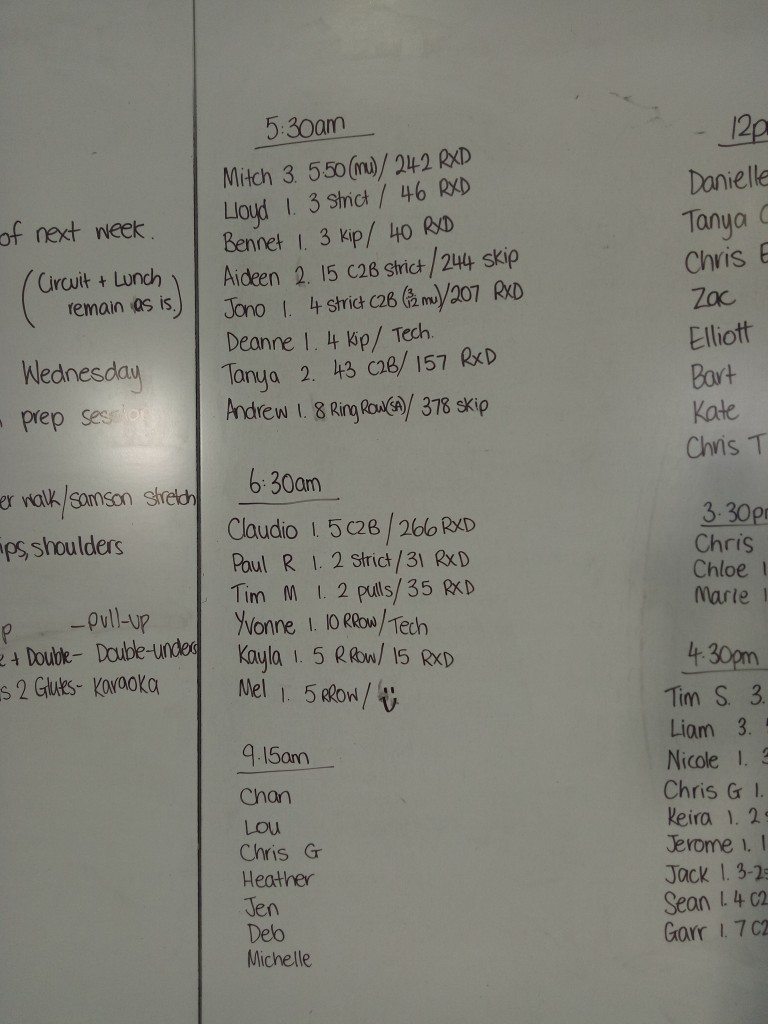 of next week.
(Circuit + Lunch
remain as is.)
Wednesday
prep session
er walk/samson stretch
ips, shoulders
p - pull-up
e + Double - Double-unders
s 2 Glutes - Karaoka
5:30am
Mitch 3. 5.50 (mu) / 242 RXD
Lloyd 1. 3 strict / 46 RXD
Bennet 1. 3 kip / 40 RXD
Aideen 2. 15 C2B strict / 244 skip
Jono 1. 4 strict C2B (3/12 mu) / 207 RXD
Deanne 1. 4 Kip / Tech.
Tanya 2. 43 C2B / 157 RXD
Andrew 1. 8 Ring Row (SA) / 378 skip
6:30am
Claudio 1. 5 C2B / 266 RXD
Paul R 1. 2 strict / 31 RXD
Tim M 1. 2 pulls / 35 RXD
Yvonne 1. 10 RRow / Tech
Kayla 1. 5 RRow / 15 RXD
Mel 1. 5 RROW /
9.15am
Chan
Lou
Chris G
Heather
Jen
Deb
Michelle
12p
Danielle
Tanya
Chris
Zac
Elliott
Bart
Kate
Chris T
3.30p
Chris
Chloe 1
Marie 1
4.30pm
Tim S. 3.
Liam 3.
Nicole 1. 3
Chris G 1.
Keira 1. 2
Jerome 1. 1
Jack 1. 3-2
Sean 1. 4 C2
Garr 1. 7 C2